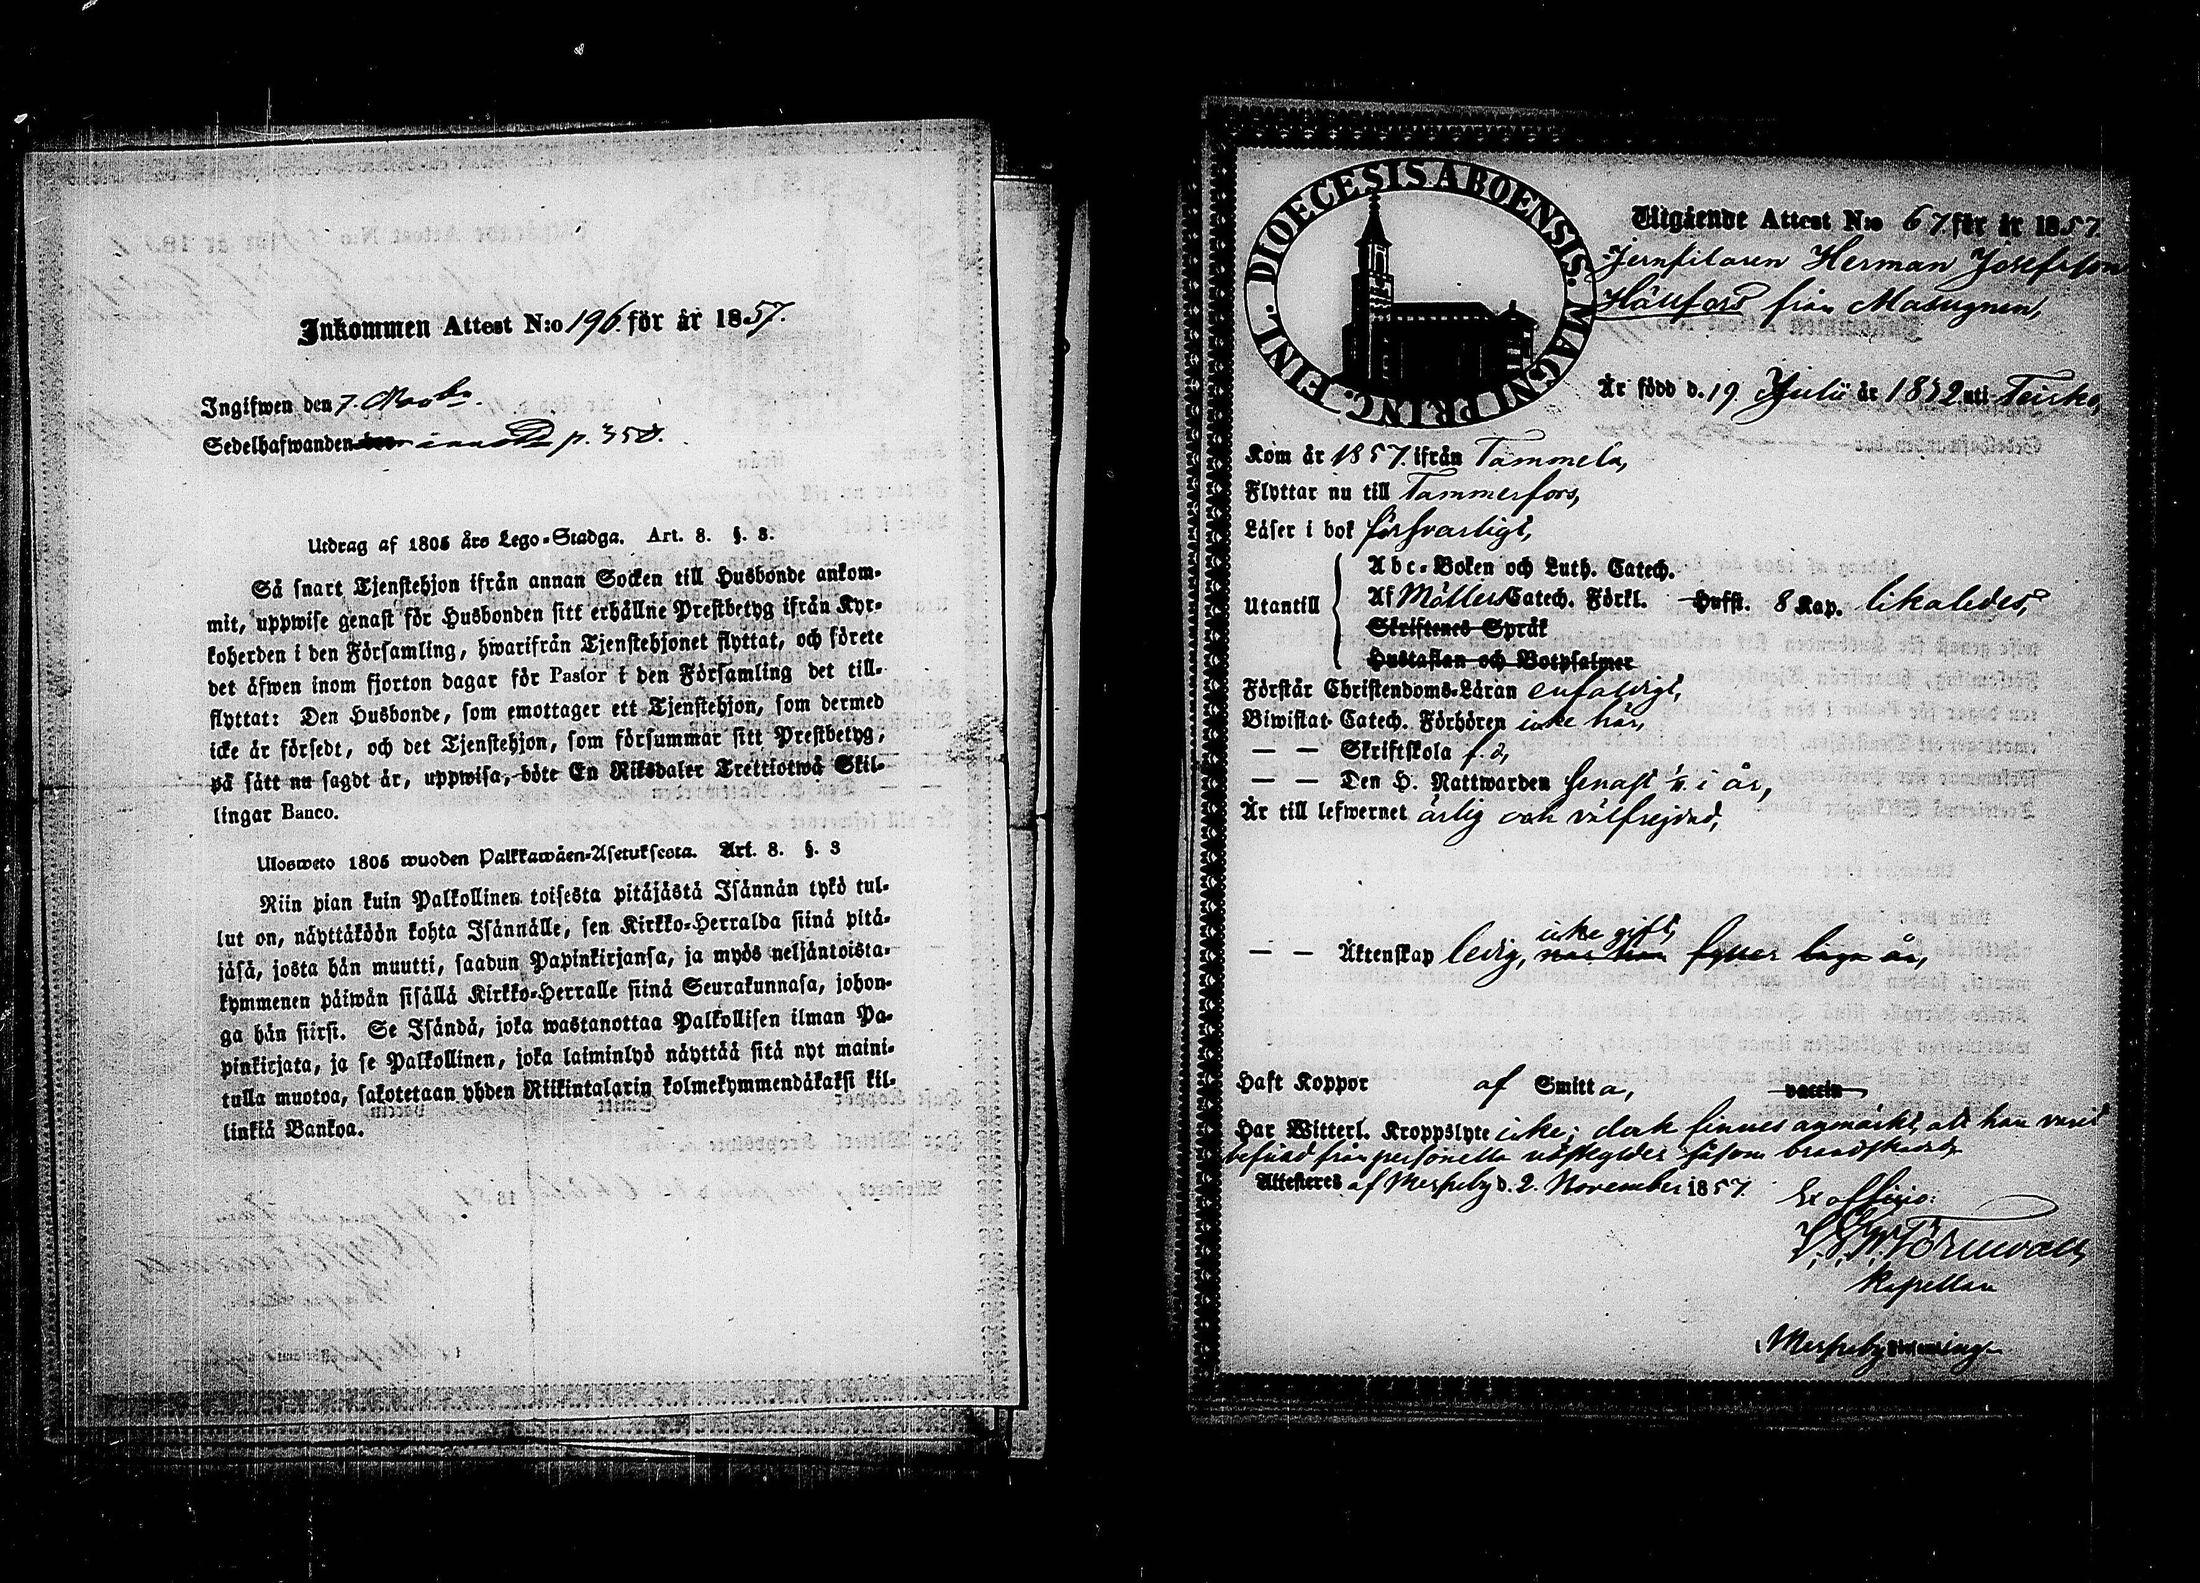 Inkommen Attest N:o 196. för år 1857.
Ingifwen den 7. Novbr.
Sedelhafwanden p. 358.
Utdrag af 1805 års Lego-Stadga. Art. 8. §. 3.
Så snart Tjenstehjon ifrån annan Socken till Husbonde ankom-
mit, uppwise genast för Husbonden sitt erhållne Prestbetyg ifrån Kyr-
koherden i den Församling, hwarifrån Tjenstehjonet flyttat, och förete
det äfwen inom fjorton dagar för Pastor i den Församling det till-
flyttat: Den Husbonde, som emottager ett Tjenstehjon, som dermed
icke är försedt, och det Tjenstehjon, som försummar sitt Prestbetyg,
på sätt nu sagdt är, uppwisa, böte En Riksdaler Trettiotwå Skil-
lingar Banco.
Ulosweto 1805 wuoden Palkkawäen-Asetuksesta. Art. 8. §. 3
Niin pian kuin Palkollinen toisesta pitäjästä Isännän tykö tul-
lut on, näyttäköön kohta Isännälle, sen Kirkko-Herralda siinä pitä-
jäsä, josta hän muutti, saadun Papinkirjansa, ja myös neljäntoista-
kymmenen päiwän sisällä Kirkko-Herralle siinä Seurakunnasa, johon-
ga hän siirsi. Se Isändä, joka wastanottaa Palkollisen ilman Pa-
pinkirjata, ja se Palkollinen, joka laiminlyö näyttää sitä nyt maini-
tulla muotoa, sakotetaan yhden Riikintalarin kolmekymmendäkaksi kil-
linkiä Bankoa.
DIOECESIS ABOENSIS. MAGNI PRINC. FINL.
Utgående Attest N:o 67 för år 1857
Jernfilaren Herman Josefsson
Hällfors från Masugnen,
Är född d. 19 Julii år 1832 uti Teisko,
Kom år 1857. ifrån Tammela,
Flyttar nu till Tammerfors,
Läser i bok försvarligt,
Abc-Boken och Luth. Catech.
Utantill Af Möllers Catech. Förkl. Hufst. 8 Kap. likaledes,
Skriftenes Språk
Hustaflan och Botpsalmer
Förstår Christendoms-Läran enfaldigt,
Biwistat Catech. Förhören icke här,
— — Skriftskola f. d,
— — Den H. Nattwarden senast i år,
Är till lefwernet ärlig och välfrejdad,
icke gift,
— — Äktenskap ledig, når han fyller laga år,
Haft Koppor af Smitta, vaccin
Har Witterl. Kroppslyte icke; dock finnes anmärkt, att han varit
befriad från personella utskylder såsom brandskadad
Attesteras af Messuby d. 2. November 1857.
Ex officio:
Törnwall
Kapellan
i Messuby Församling